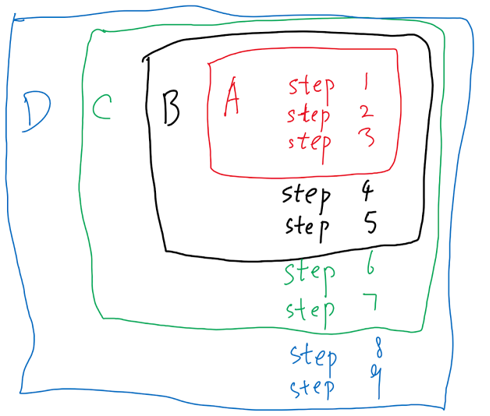 D C B A step 1
step 2
step 3
step 4
step 5
step 6
step 7
step 8
step 9